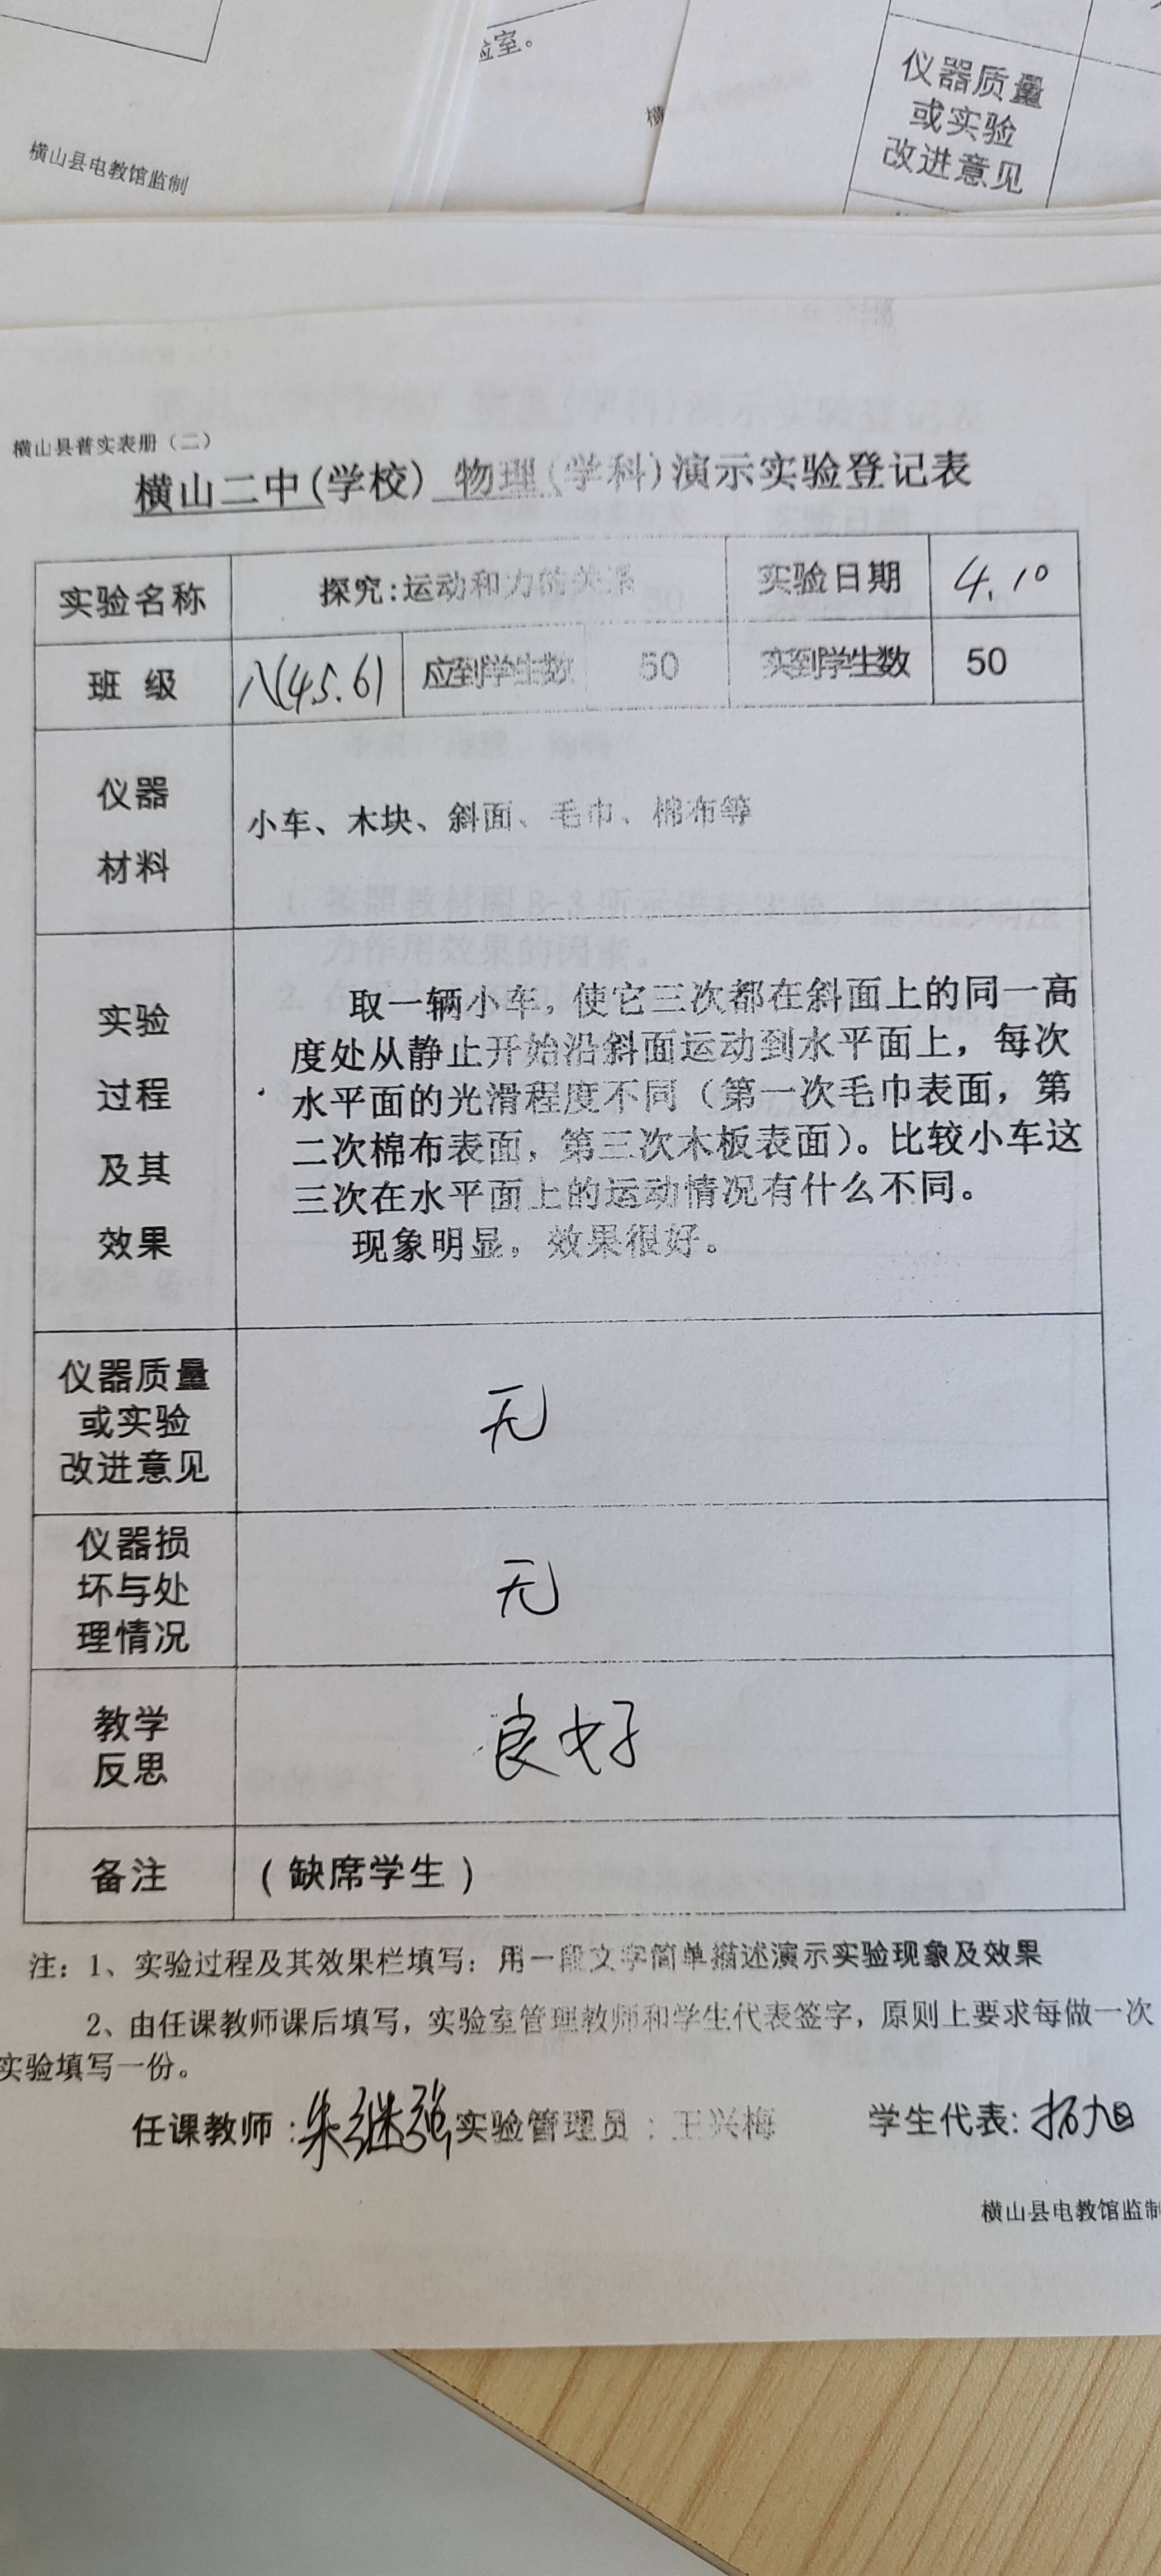 验室。
横山县电教馆监制
横
仪器质量
或实验
改进意见
横山县普实表册（二）
横山二中(学校) 物理(学科)演示实验登记表
实验名称 探究:运动和力的关系 实验日期 4.10
班 级 八(45.6) 应到学生数 50 实到学生数 50
仪器
材料
小车、木块、斜面、毛巾、棉布等
实验
过程
及其
效果
取一辆小车，使它三次都在斜面上的同一高
度处从静止开始沿斜面运动到水平面上，每次
水平面的光滑程度不同（第一次毛巾表面，第
二次棉布表面，第三次木板表面）。比较小车这
三次在水平面上的运动情况有什么不同。
现象明显，效果很好。
仪器质量
或实验
改进意见
无
仪器损
坏与处
理情况
无
教学
反思
良好
备注 （缺席学生）
注：1、实验过程及其效果栏填写：用一段文字简单描述演示实验现象及效果
2、由任课教师课后填写，实验室管理教师和学生代表签字，原则上要求每做一次
实验填写一份。
任课教师：朱继强 实验管理员：王兴梅 学生代表:
横山县电教馆监制